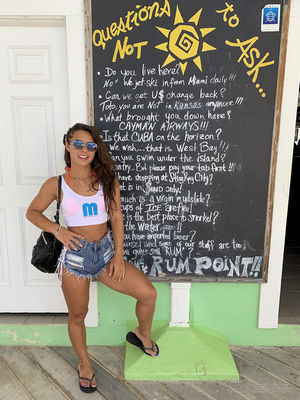 Questions to
Not Ask...
• Do you live here?
No!! We jet ski in from Miami daily!!!
• Can we get U$ change back?
Toto, you are NOT in Kansas anymore!!!
• What brought you down here?
CAYMAN AIRWAYS!!!
Is that CUBA on the horizon?
We wish... that is West Bay!!
can you swim under the island?
try. But please pay your tab first!!
stopping at Sting Ray City?
is much is a virgin mudslide?
cups of ICE are free!
is the best place to snorkel?
the Water
you have imported beer?
yourself and some of our staff are too,
you guys sell RUM?
RUM POINT!!
m